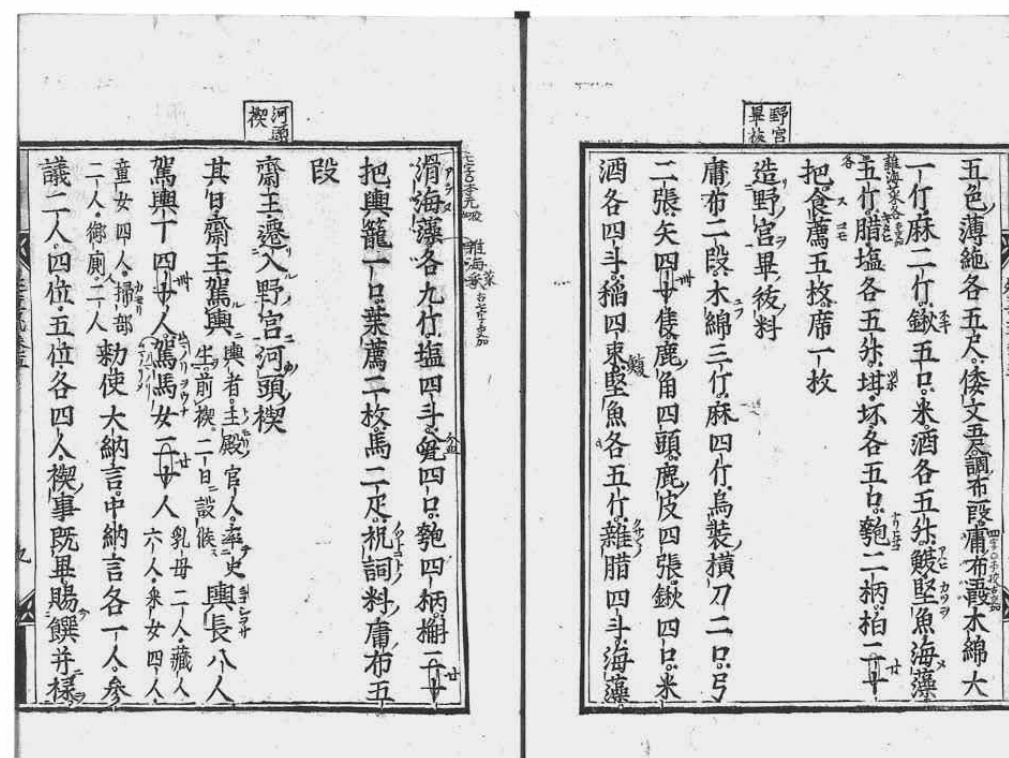 野宮
畢祓
五色薄絁各五尺倭文五尺調布一段庸布二段木綿大
一斤麻二斤鍬五口米酒各五升鰒堅魚海藻
五斤腊塩各五升坩坏各五口匏二柄柏二十
把食薦五枚席一枚
造野宮畢祓料
庸布二段木綿三斤麻四斤烏装横刀二口弓
二張矢四十隻鹿角四頭鹿皮四張鍬四口米
酒各四斗稲四束堅魚各五斤雜腊四斗海藻
河頭
禊
滑海藻各九斤塩四斗瓫四口匏四柄槲二十
把輿籠一口葉薦二枚馬二疋祝詞料庸布五
段
齋王遷入野宮河頭禊
其日齋王駕輿輿者主殿官人率史生前禊二日設候輿長八人
駕輿丁四十人駕馬女二十人乳母二人藏人六人采女四人
童女四人掃部二人御廁二人勅使大納言中納言各一人參
議二人四位五位各四人禊事既畢賜饌并禄